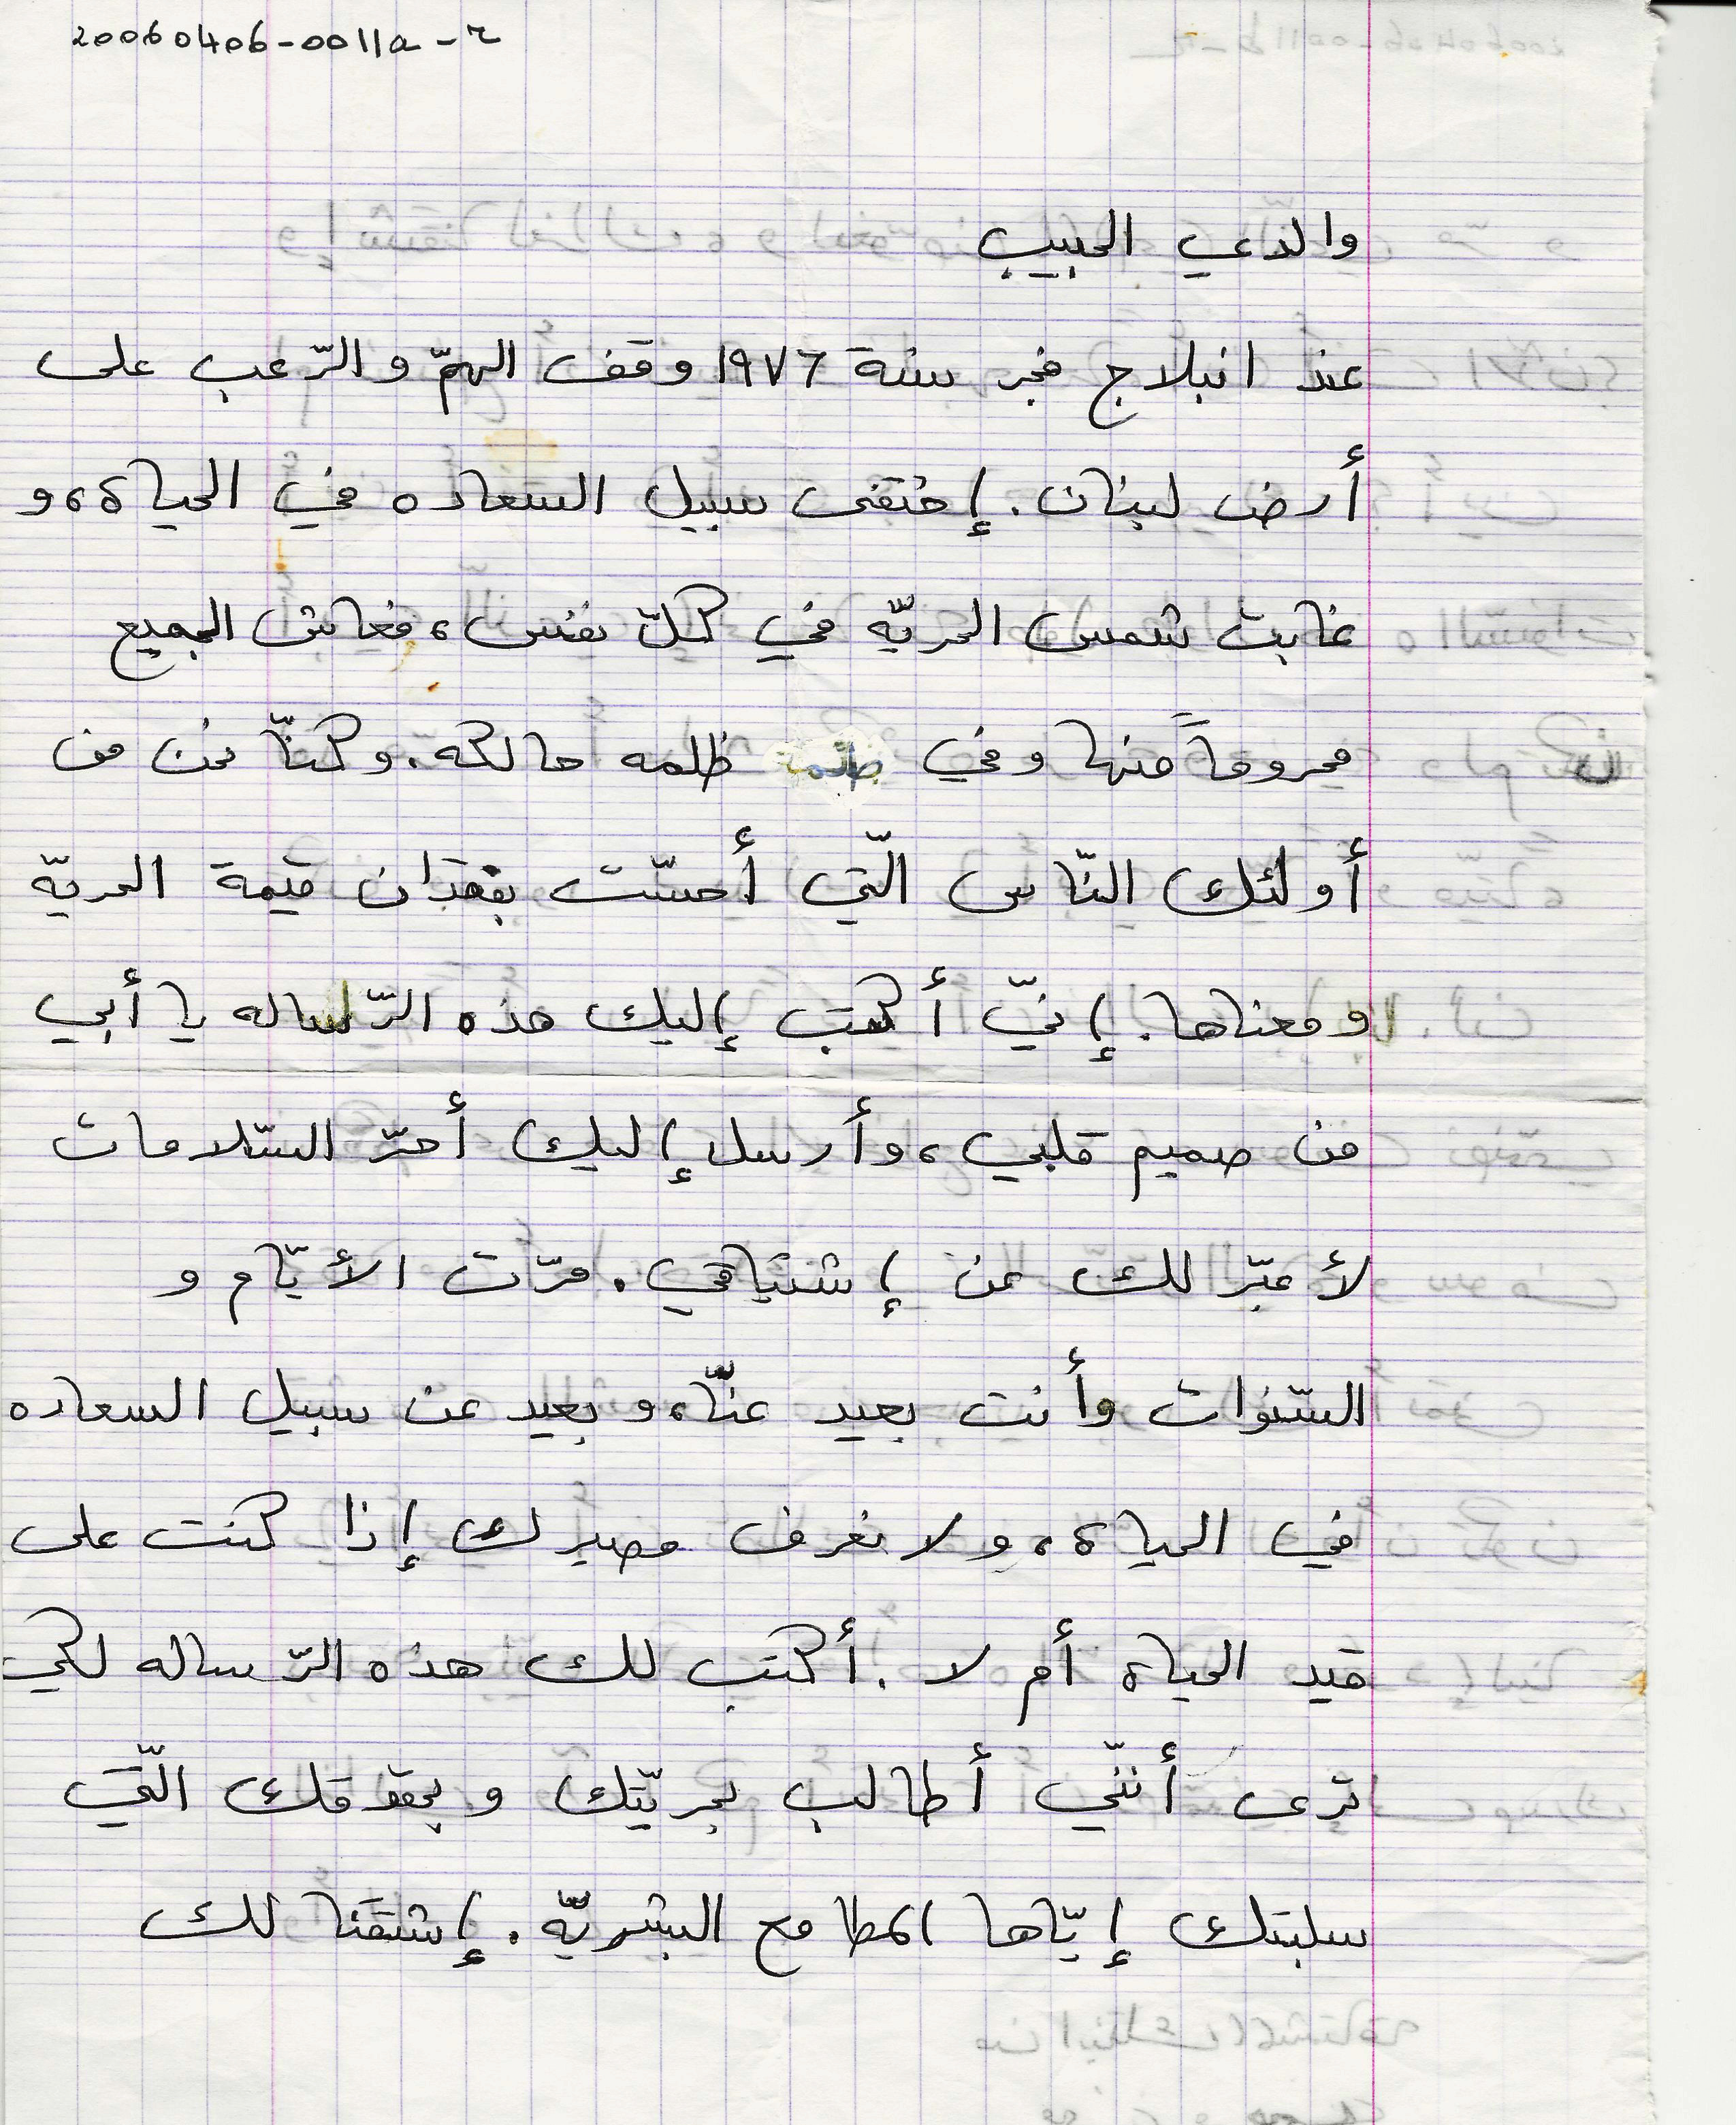 20060406-0011a-r
والدي الحبيب
عند انبلاج فجر سنة ١٩٧٦ وقف الهمّ والرّعب على
أرض لبنان. إختفى سبيل السعاده في الحياة، و
غابت شمس الحريّه في كلّ نفس، فعاش الجميع
محروماً منها وفي ظلمه حالكه. وكنّا نحن من
أولئك النّاس الّتي أحسّت بفقدان قيمة الحريّه
ومعناها. إنّي أكتب إليك هذه الرّساله يا أبي
من صميم قلبي، وأرسل إليك أحرّ السّلامات
لأعبّر لك عن إشتياقي. مرّت الأيّام و
السّنوات وأنت بعيد عنّا، و بعيد عن سبيل السعاده
في الحياة، ولا نعرف مصيرك إذا كنت على
قيد الحياة أم لا. أكتب لك هذه الرّساله لكي
ترى أنّني أطالب بحريّتك و بحقوقك الّتي
سلبتك إيّاها المطامع البشريّه. إشتقنا لك